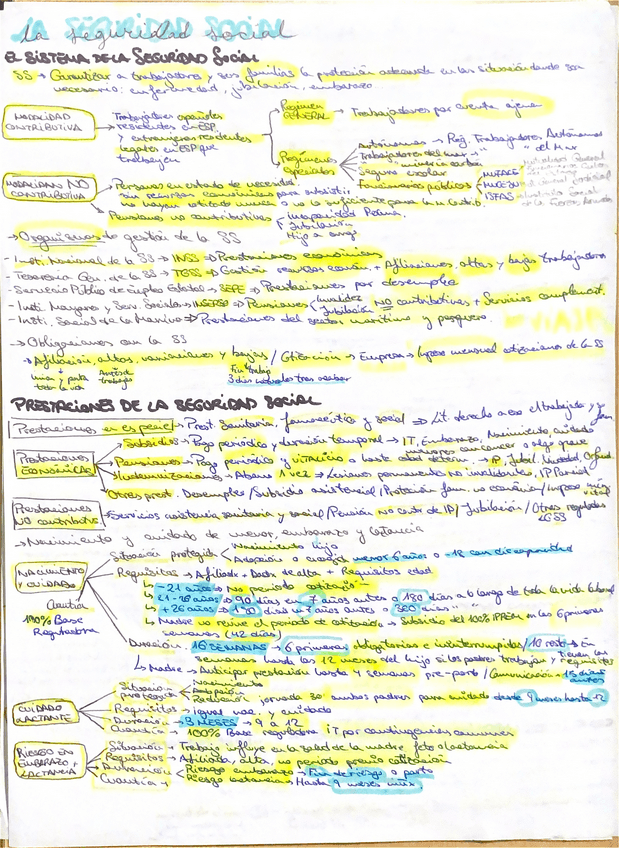 La Seguridad Social
EL SISTEMA DE LA SEGURIDAD SOCIAL
SS → Garantizar a trabajadores y sus familias la protección adecuada en las situación donde son
necesario: enfermedad, jubilación, embarazo
MODALIDAD CONTRIBUTIVA
Trabajadores españoles
residentes en ESP,
y extranjeros residentes
legales en ESP que
trabajen
Régimen GENERAL → Trabajadores por cuenta ajena
Regímenes especiales
Autónomos → Reg. Trabajadores Autónomos
Trabajadores del mar → " " del Mar
" minería carbón
Seguro escolar
Funcionarios públicos
MUFACE
MUGEJU
ISFAS
MODALIDAD NO CONTRIBUTIVA
Personas en estado de necesidad
sin recursos económicos para subsistir
no hayan cotizado nunca o no lo suficiente para la M. Contrib.
Pensiones no contributivas
incapacidad Perma.
Jubilación
Hijo a cargo
→ Organismos de gestión de la SS
- Insti. Nacional de la SS → INSS ⇒ Prestaciones económicas
- Tesorería Gen. de la SS → TGSS ⇒ Gestión recursos econom. + Afiliaciones, altas y bajas trabajadores
- Servicio Público de Empleo Estatal → SEPE ⇒ Prestaciones por desempleo
- Insti Mayores y Serv. Sociales → IMSERSO ⇒ Pensiones Invalidez Jubilación NO contributivas + Servicios complement.
- Insti. Social de la Marina ⇒ Prestaciones del sector marítimo y pesquero.
→ Obligaciones con la SS
→ Afiliación, altas, variaciones y bajas / Cotización → Empresa → Ingreso mensual cotizaciones de la SS
única y para toda la vida
Antes de trabajar
Fin trabajo
3 días naturales tras acabar
PRESTACIONES DE LA SEGURIDAD SOCIAL
Prestaciones en especie → Prest. Sanitaria, farmacéutica y social
Prestaciones ECONÓMICAS
Subsidios → Pago periódico y duración temporal → IT, Embarazo, Nacimiento, cuidado
menores con cáncer o algo grave
Pensiones → Pago periódico y vitalicio o hasta edad determ. → IP, Jubil, Viudedad, Orfand
Indemnizaciones → Abono 1 vez → Lesiones permanentes no invalidantes, IP Parcial
Otras prest. Desempleo / Subsidio asistencial / Protección fam. no económica / Ingreso mín. vital
Prestaciones NO contributiv.
Servicios asistencia sanitaria y social / Pensión no contr. de IP / Jubilación / Otras reguladas LGSS
→ Nacimiento y cuidado de menor, embarazo y lactancia
NACIMIENTO Y CUIDADO
Cuantía
100% Base Reguladora
Situación protegida
Nacimiento hijo
Adopción o acogida menor 6 años o -18 con discapacidad
Requisitos → Afiliado + Dado de alta + Requisitos edad
↳ -21 años → No período cotización
↳ 21-26 años → 90 días en 7 años antes o 180 días a lo largo de toda la vida laboral
↳ +26 años → 180 días en 7 años antes o 360 días " "
↳ Madre no reúne el período de cotización → Subsidio del 100% IPREM en las 6 primeras
semanas (42 días)
Duración. 16 SEMANAS → 6 primeras obligatorias e ininterrumpidas / 10 resto → En
semanas hasta los 12 meses del hijo si los padres trabajan y tienen los requisitos
↳ Madre → Anticipar prestación hasta 4 semanas pre-parto / Comunicación → 15 días antes
CUIDADO LACTANTE
Situación protegida
Nacimiento
Adopción
Reducción jornada 30' ambos padres para cuidado desde 9 meses hasta 12
Requisitos → igual nac. y cuidado
Duración → 3 MESES → 9 a 12
Cuantía → 100% Base reguladora IT por contingencias comunes
RIESGO EN EMBARAZO + LACTANCIA
Situación → Trabajo influye en la salud de la madre, feto o lactancia
Requisitos → Afiliada, alta, no período previo cotización
Duración
Cuantía
Riesgo embarazo → Fin de riesgo o parto
Riesgo lactancia → Hasta 9 meses